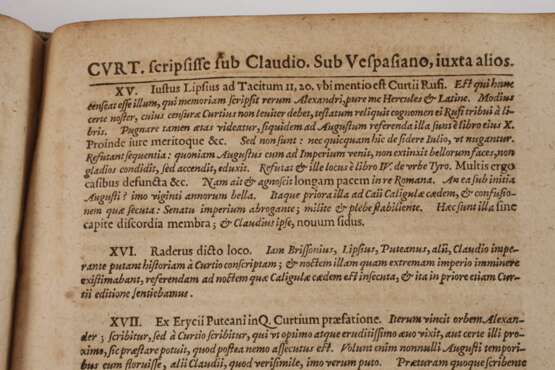 CVRT. scripsisse sub Claudio. Sub Vespasiano, iuxta alios.
XV. Iustus Lipsius ad Tacitum 11, 20. vbi mentio est Curtii Rufi. Est qui hunc
censeat esse illum, qui memoriam scripsit rerum Alexandri, pure me Hercules & Latine. Modius
certe noster, cuius censura Curtius non leuiter debet, testatum reliquit cognomen ei Rufi tribui à li-
bris. Pugnare tamen ætas videatur, siquidem ad Augustum referenda illa sunt è libro eius X.
Proinde iure meritoque &c. Sed non sunt: nec quicquam hic de sidere Iulio, vt nugantur.
Refutant sequentia: quoniam Augustus cum ad Imperium venit, non extinxit bellorum faces, non
gladios condidit, sed accendit, eduxit. Refutat & ille locus è libro IV. de vrbe Tyro. Multis ergo
casibus defuncta &c. Nam ait & agnoscit longam pacem in re Romana. An ea sub initia
Augusti? imo viginti annorum bella. Itaque priora illa ad Caii Caligulæ cædem, & confusio-
nem quæ secuta: Senatu imperium abrogante; milite & plebe stabiliente. Hæc sunt illa sine
capite discordia membra; & Claudius ipse, nouum sidus.
XVI. Raderus dicto loco. Iam Brissonius, Lipsius, Puteanus, alii, Claudio impe-
rante putant historiam à Curtio conscriptam; & noctem illam quam extremam imperio imminere
existimabant, referendam ad noctem quæ Caligulæ cædem est insecuta, & ita in priore etiam Cur-
tii editione sentiebamus.
XVII. Ex Erycii Puteani in Q. Curtium præfatione. Iterum vincit orbem Alexan-
der; scribitur, sed à Curtio scribitur, qui vt optimo atque eruditissimo æuo vixit, aut certe illi pro-
ximo, sic præstare potuit, quod postea nemo assecutus est. Volunt enim nonnulli Augusti tempori-
bus eum floruisse, alii Claudii, quod verosimile, imo verum puto. Præturam quoque scribente